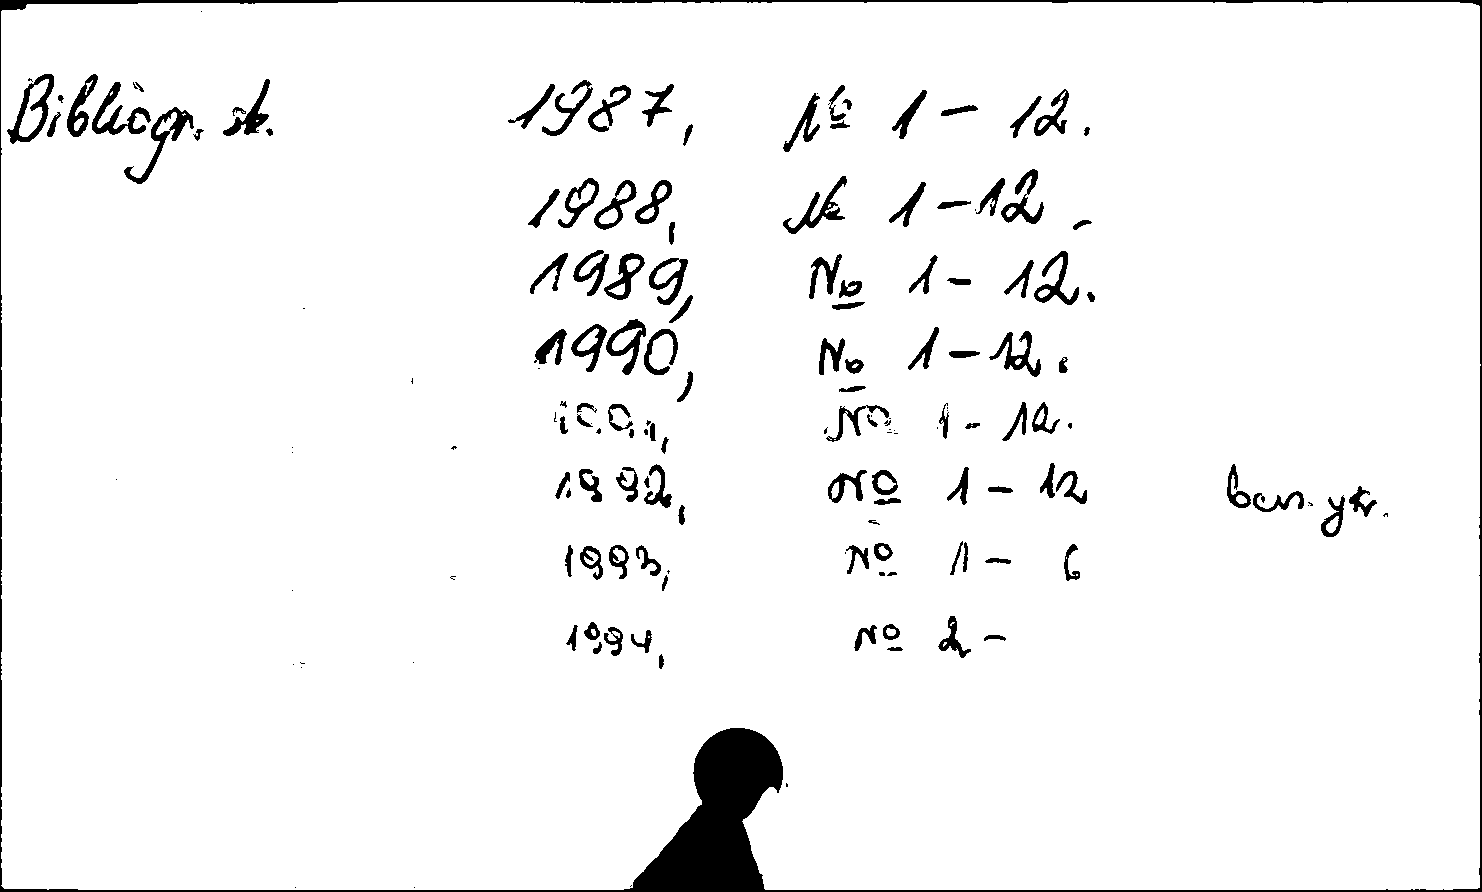 Bibliogr. sk. 1987, № 1 - 12.
1988, № 1 - 12.
1989, № 1 - 12.
1990, № 1 - 12.
1991, № 1 - 12.
1992, № 1 - 12
1993, № 1 - 6
1994, № 2 -